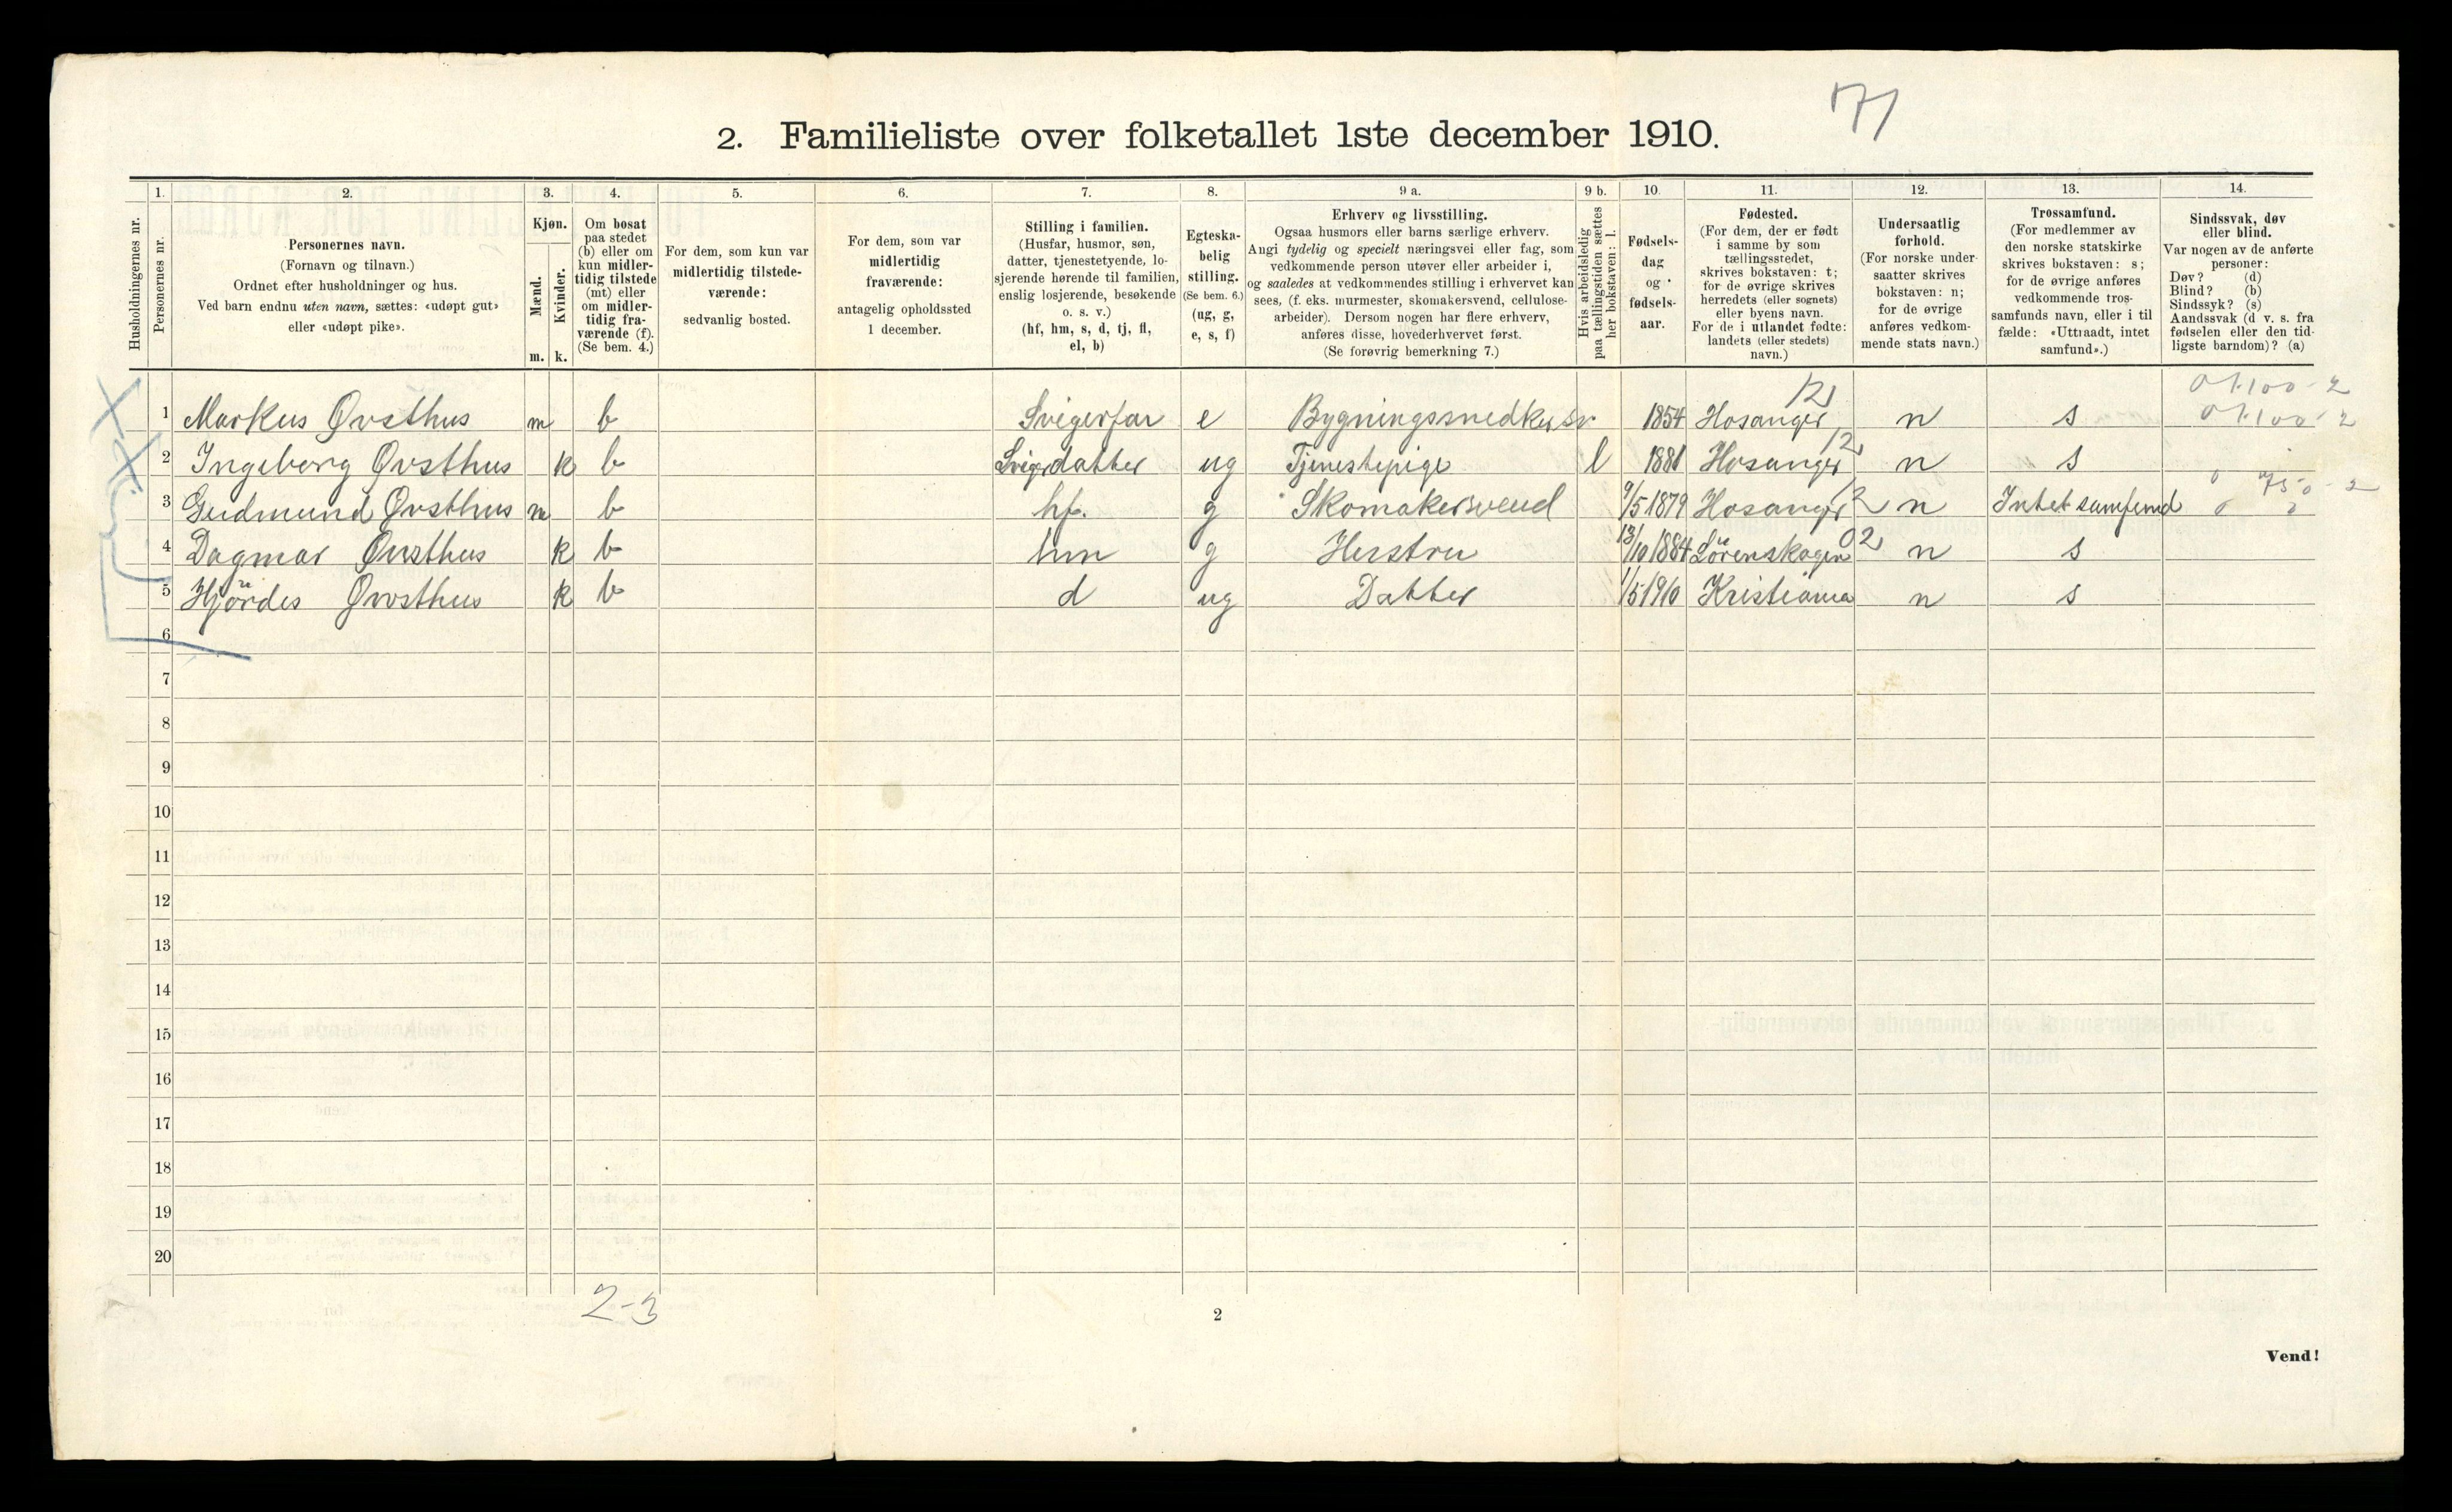 171
2. Familieliste over folketallet 1ste december 1910.
Husholdningernes nr.
1.
Personernes nr.
2.
Personernes navn.
(Fornavn og tilnavn.)
Ordnet efter husholdninger og hus.
Ved barn endnu uten navn, sættes: «udøpt gut»
eller «udøpt pike».
3.
Kjøn.
Mænd.
Kvinder.
m.
k.
4.
Om bosat
paa stedet
(b) eller om
kun midler-
tidig tilstede
(mt) eller
om midler-
tidig fra-
værende (f).
(Se bem. 4.)
5.
For dem, som kun var
midlertidig tilstede-
værende:
sedvanlig bosted.
6.
For dem, som var
midlertidig
fraværende:
antagelig opholdssted
1 december.
7.
Stilling i familien.
(Husfar, husmor, søn,
datter, tjenestetyende, lo-
sjerende hørende til familien,
enslig losjerende, besøkende
o. s. v.)
(hf, hm, s, d, tj, fl,
el, b)
8.
Egteska-
belig
stilling.
(Se bem. 6.)
(ug, g,
e, s, f)
9 a.
Erhverv og livsstilling.
Ogsaa husmors eller barns særlige erhverv.
Angi tydelig og specielt næringsvei eller fag, som
vedkommende person utøver eller arbeider i,
og saaledes at vedkommendes stilling i erhvervet kan
sees, (f. eks. murmester, skomakersvend, cellulose-
arbeider). Dersom nogen har flere erhverv,
anføres disse, hovederhvervet først.
(Se forøvrig bemerkning 7.)
9 b.
Hvis arbeidsledig
paa tællingstiden sættes
her bokstaven: l.
10.
Fødsels-
dag
og
fødsels-
aar.
11.
Fødested.
(For dem, der er født
i samme by som
tællingsstedet,
skrives bokstaven: t;
for de øvrige skrives
herredets (eller sognets)
eller byens navn.
For de i utlandet fødte:
landets (eller stedets)
navn.)
12.
Undersaatlig
forhold.
(For norske under-
saatter skrives
bokstaven: n;
for de øvrige
anføres vedkom-
mende stats navn.)
13.
Trossamfund.
(For medlemmer av
den norske statskirke
skrives bokstaven: s;
for de øvrige anføres
vedkommende tros-
samfunds navn, eller i til
fælde: «Uttraadt, intet
samfund».)
14.
Sindssvak, døv
eller blind.
Var nogen av de anførte
personer:
Døv? (d)
Blind? (b)
Sindssyk? (s)
Aandssvak (d v. s. fra
fødselen eller den tid-
ligste barndom)? (a)
1 Markus Øvsthus m b Svigerfar e Bygningssnedkersv 1854 Hosanger 12 n s
2 Ingeborg Øvsthus k b Svigerdatter ug Tjenestepige l 1881 Hosanger 12 n s
3 Gudmund Øvsthus m b hf. g Skomakersvend 9/5 1879 Hosanger 12 n Intet samfund
4 Dagmar Øvsthus k b hm g Hustru 13/10 1884 Lörenskogen 02 n s
5 Hjördis Øvsthus k b d ug Datter 1/5 1910 Kristiania n s
6
7
8
9
10
11
12
13
14
15
16
17
18
19
20
2-3
2
Vend!